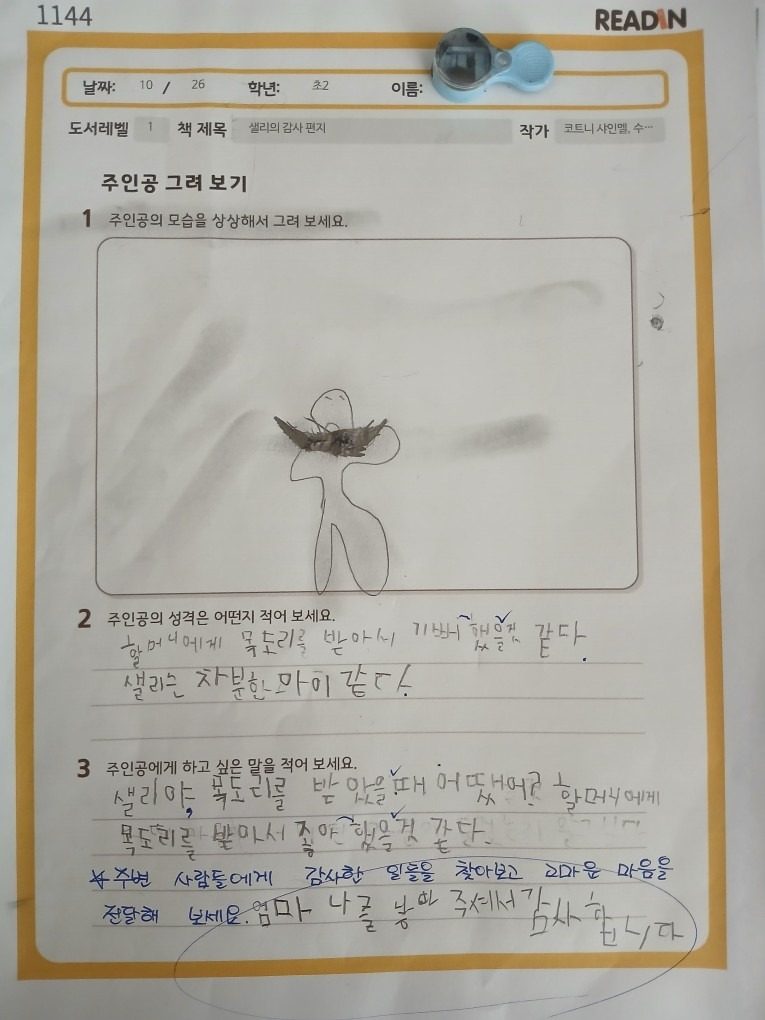 1144
READIN
날짜: 10 / 26 학년: 초2 이름:
도서레벨 1 책 제목 샐리의 감사 편지 작가 코트니 샤인멜, 수…
주인공 그려 보기
1 주인공의 모습을 상상해서 그려 보세요.
2 주인공의 성격은 어떤지 적어 보세요.
할머니에게 목도리를 받아서 기뻐 했을것 같다.
샐리는 차분한 같다.
3 주인공에게 하고 싶은 말을 적어 보세요.
샐리야, 목도리를 받았을때 어땠어? 할머니에게
목도리를 했을것 같다.
주변 사람들에게 감사한 일들을 찾아보고 고마운 마음을
전달해 보세요. 엄마 나를 주셔서 감사합니다